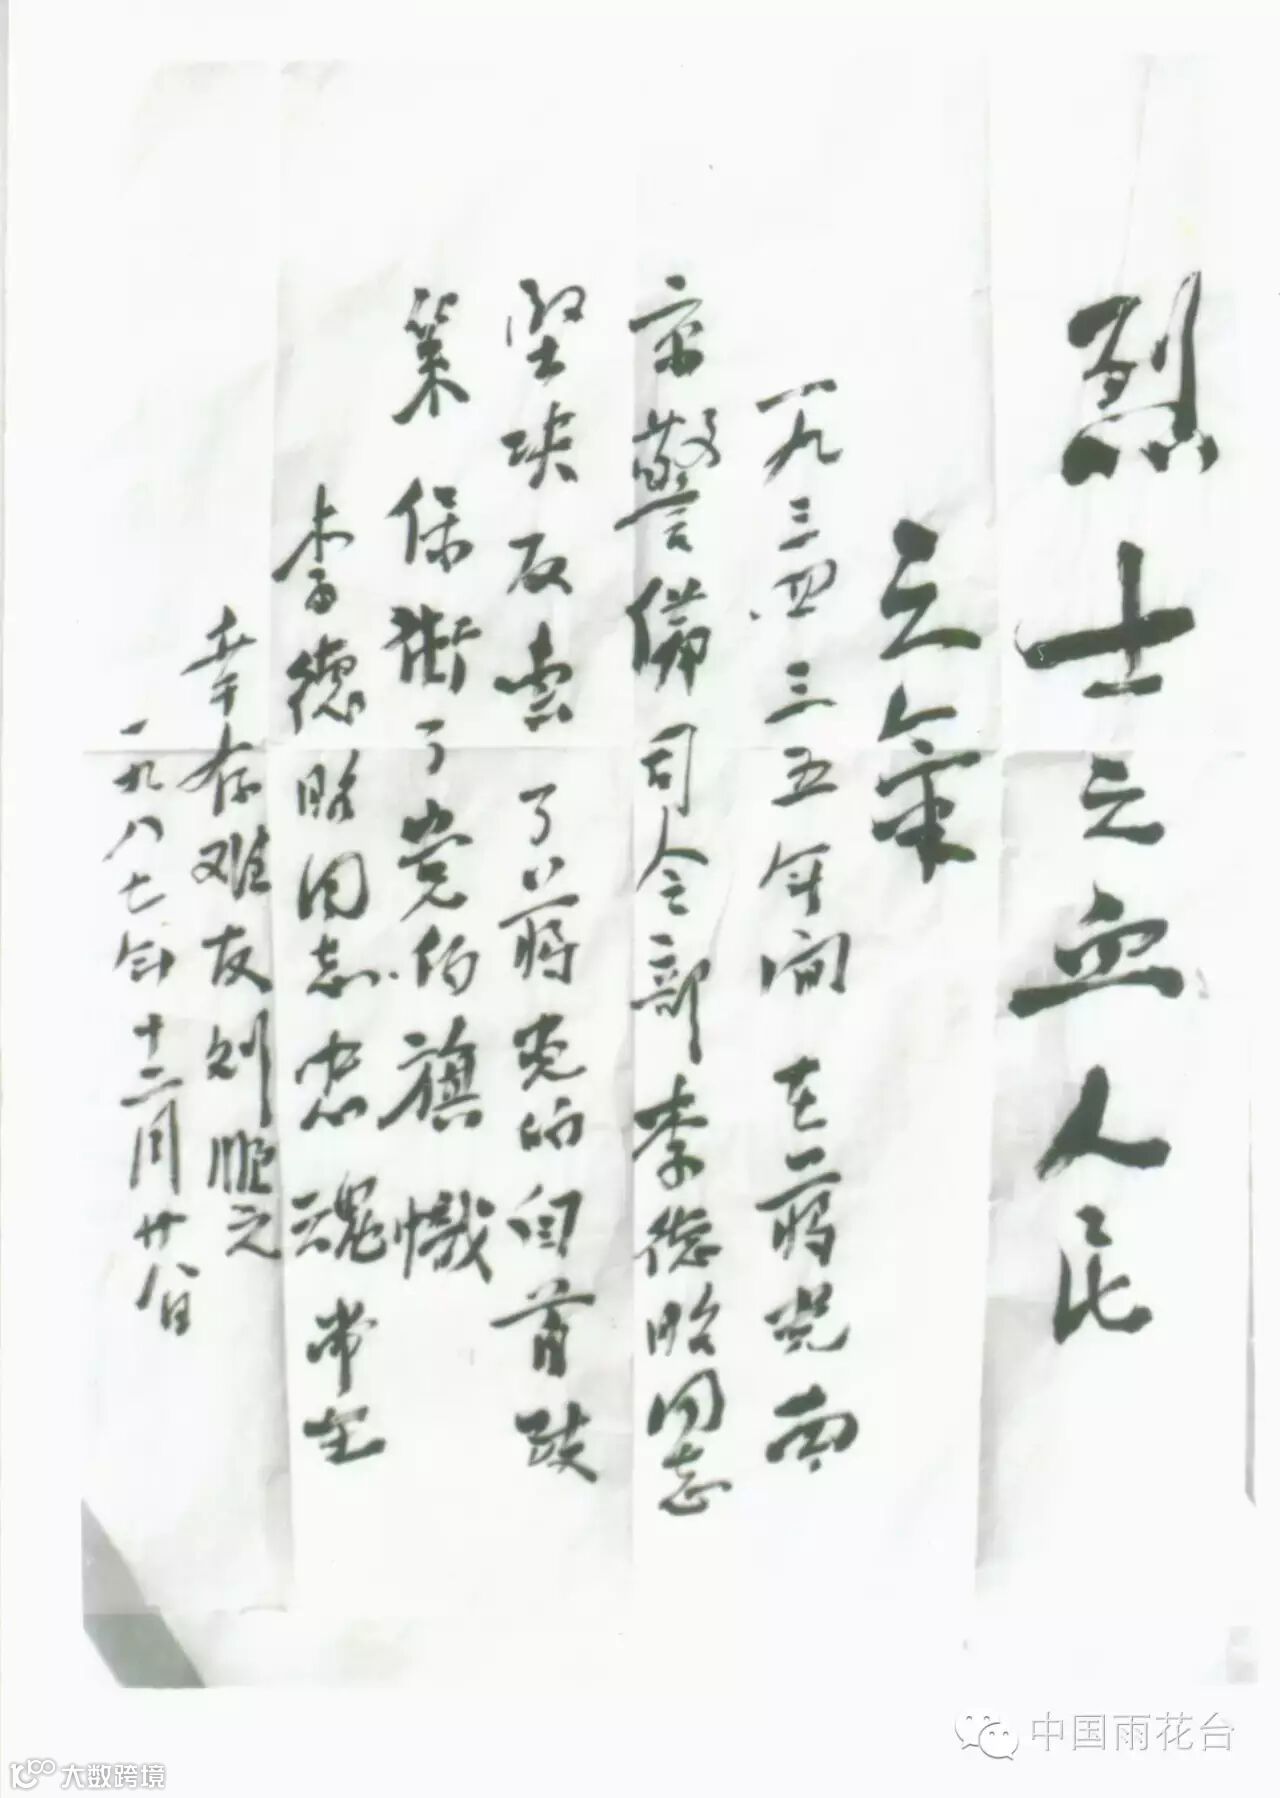 烈士之血人民
之
一九三四三五年间在蒋党南
京警備司令部李德昭同志
坚决反 了蒋党的自首政
策保衛了党的旗幟
李德昭同志忠魂常在
幸存难友刘顺元
一九八七年十二月廿八日
中国雨花台
大数跨境